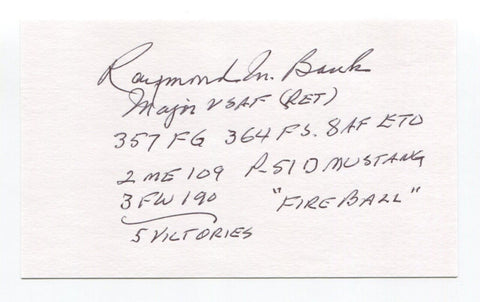 Raymond M. Bank
Major USAF (RET)
357 FG 364 FS. 8AF ETO
2 ME 109 P-51D MUSTANG
3 FW 190 "FIREBALL"
5 VILTORIES